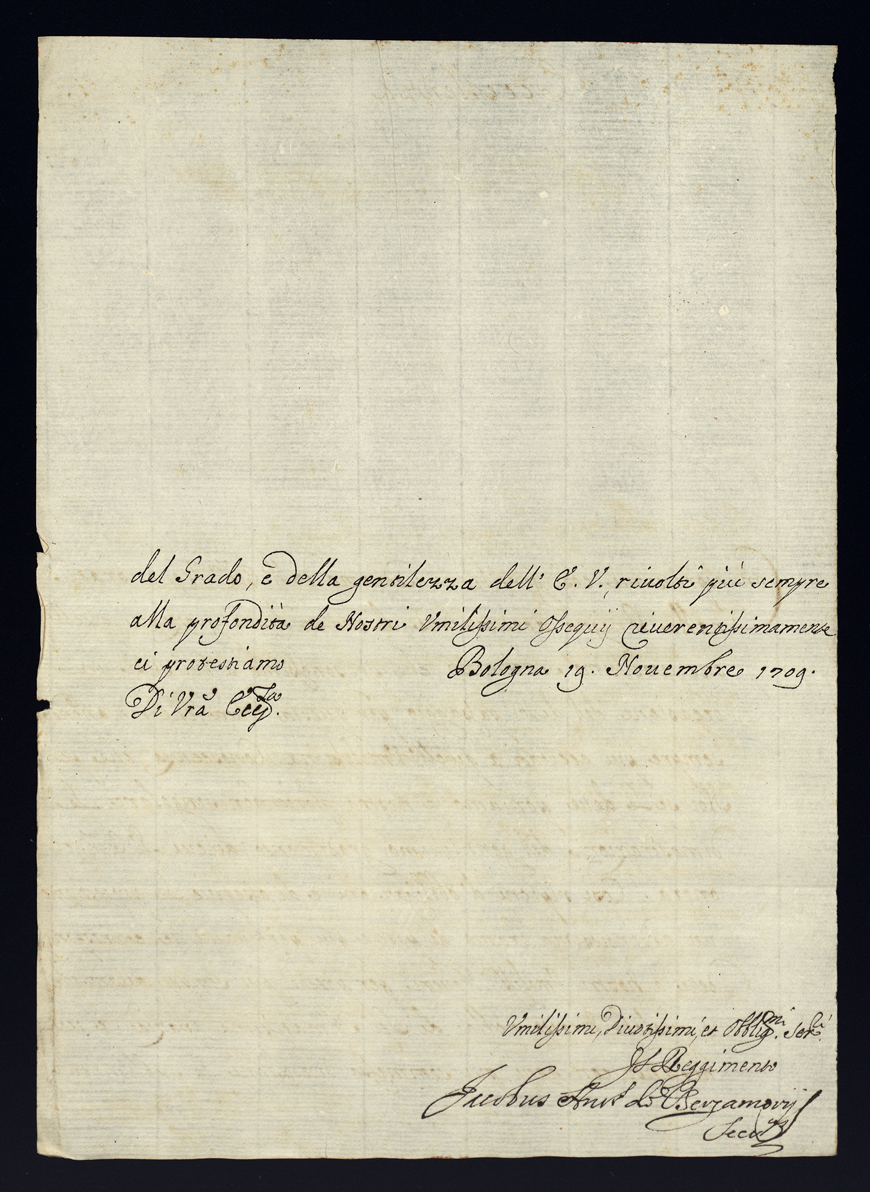 del Grado, e della gentilezza dell' E. V., riuolti più sempre
alla profondità de Nostri Vmilissimi Ossequij riuerentissimamente
ci protestiamo Bologna 19. Nouembre 1709.
Di Vrã Ecc.za
Vmilissimi, Diuotissimi, et Obblig.mi Ser.ri
Il Reggimento
Jacobus Ant.s de
Secr.s